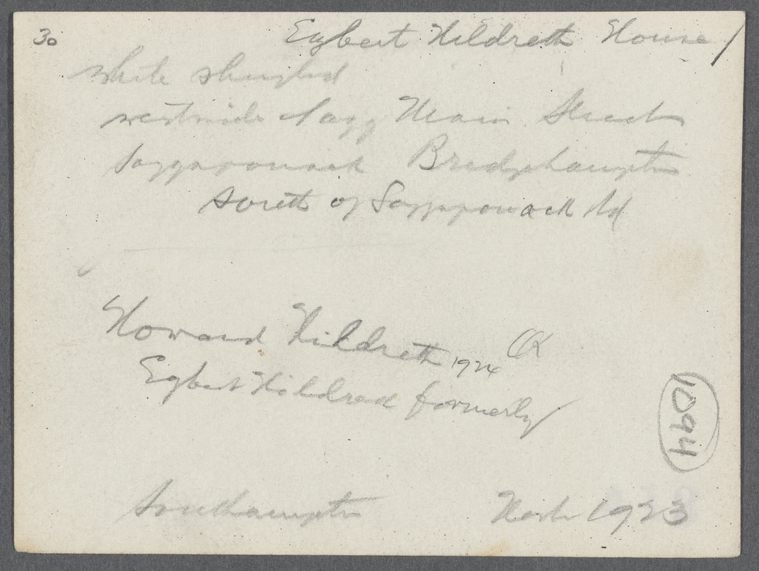 30 Egbert Hildreth House
white shingled
westside Sagg Main Street
Saggaponack Bridgehampton
south of Saggaponack Rd
Howard Hildreth 1924 OK
Egbert Hildred formerly
1094
Southampton 1923